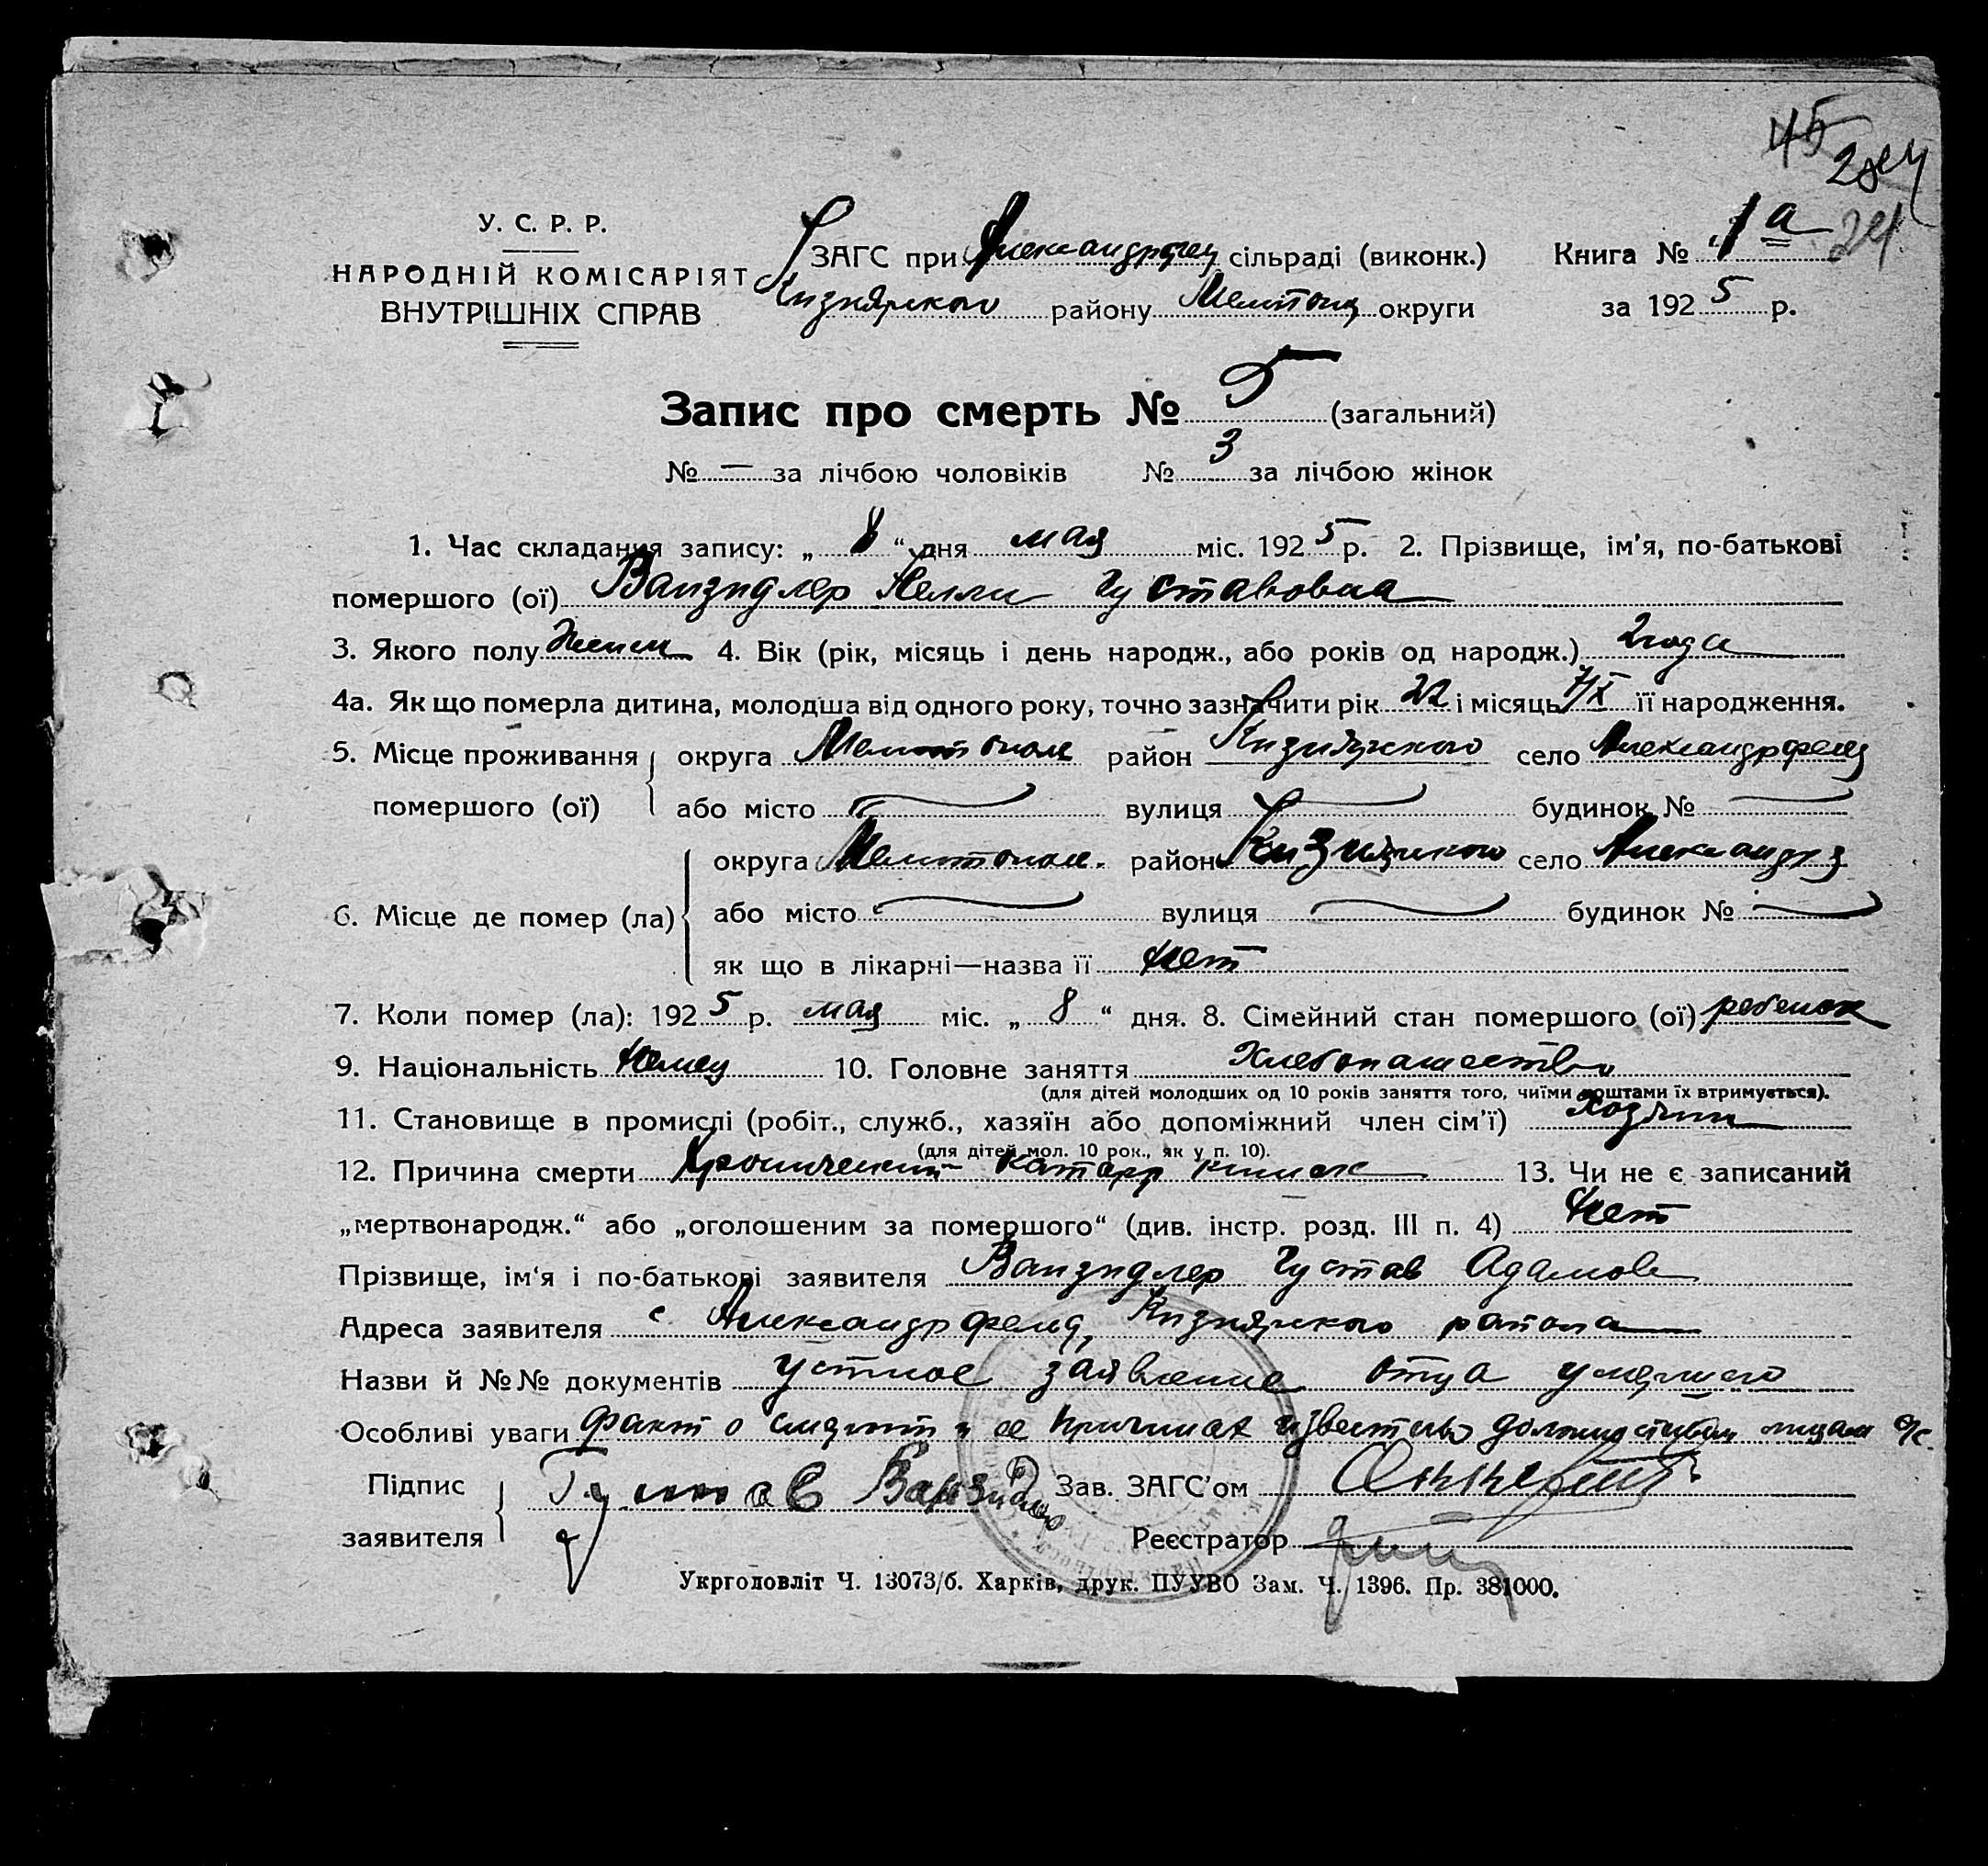 45
284
24
У. С. Р. Р.
НАРОДНІЙ КОМІСАРІЯТ
ВНУТРІШНІХ СПРАВ
ЗАГС при Александрфельд сільраді (виконк.)
Кизиярского району Мелитоп округи
Книга № 1а
за 1925 р.
Запис про смерть № 5 (загальний)
№ — за лічбою чоловіків № 3 за лічбою жінок
1. Час складання запису: „ 8 “ дня мая міс. 1925 р. 2. Прізвище, ім’я, по-батькові
помершого (ої) Ванзидлер Нелли Густавовна
3. Якого полу женск 4. Вік (рік, місяць і день народж., або років од народж.) 2 года
4а. Як що померла дитина, молодша від одного року, точно зазначити рік 22 і місяць 7/X її народження.
5. Місце проживання округа Мелитополь район Кизиярского село Александрфельд
помершого (ої) або місто — вулиця — будинок № —
округа Мелитополь. район Кизиярского село
6. Місце де помер (ла) або місто — вулиця — будинок № —
як що в лікарні—назва її нет
7. Коли помер (ла): 1925 р. мая міс. „ 8 “ дня. 8. Сімейний стан помершого (ої) ребенок
9. Національність немец 10. Головне заняття хлебопашество
(для дітей молодших од 10 років заняття того, чиїми коштами їх втримується).
11. Становище в промислі (робіт., служб., хазяїн або допоміжний член сім’ї) хозяин
(для дітей мол. 10 рок., як у п. 10).
12. Причина смерти Хронический катарр кишок 13. Чи не є записаний
„мертвонародж.“ або „оголошеним за помершого“ (див. інстр. розд. III п. 4) нет
Прізвище, ім‘я і по-батькові заявителя Ванзидлер Густав Адамов
Адреса заявителя с. Александрфельд, Кизиярского района
Назви й №№ документів устное заявление отца умершего
Особливі уваги факт о смерти и ее причинах известно должностным лицам с/с.
Підпис
заявителя Густав Ванзидлер
Зав. ЗАГС’ом
Реєстратор
Укрголовліт Ч. 13073/б. Харків, друк. ПУУВО Зам. Ч. 1396. Пр. 381000.